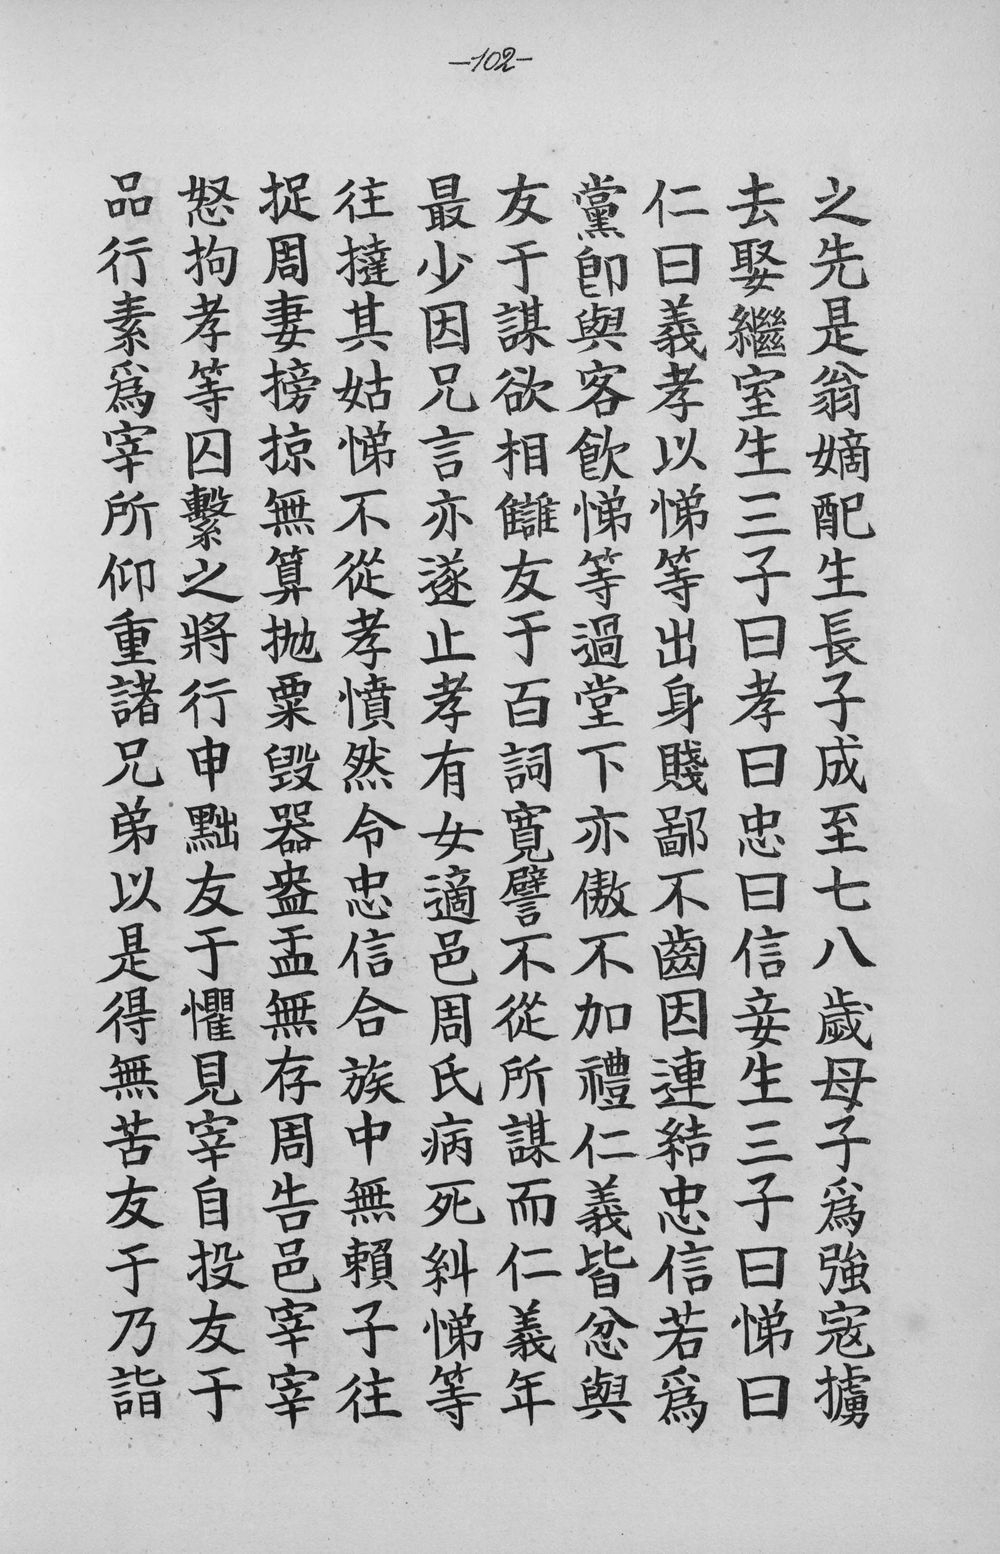 -102-
之先是翁嫡配生長子成至七八歲母子爲強寇擄
去娶繼室生三子曰孝曰忠曰信妾生三子曰悌曰
仁曰義孝以悌等出身賤鄙不齒因連結忠信若爲
黨卽與客飮悌等過堂下亦傲不加禮仁義皆忿與
友于謀欲相讎友于百詞寬譬不從所謀而仁義年
最少因兄言亦遂止孝有女適邑周氏病死糾悌等
往撻其姑悌不從孝憤然令忠信合族中無賴子往
捉周妻搒掠無算抛粟毀器盎盂無存周告邑宰宰
怒拘孝等囚繫之將行申黜友于懼見宰自投友于
品行素爲宰所仰重諸兄弟以是得無苦友于乃詣